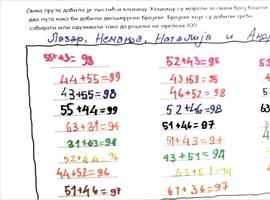 Свака група добила је листић и коцкицу. Коцкицу су морали за сваки број бацити
два пута како би добили двоцифрене бројеве. Бројеве које су добили треба
сабирати или одузимати тако да решење не прелази 100.
Лазар, Немања, Наталија и
55+43=98 52+43=95
44+55=99 43+52=95
43+55=98 46+52=98
55+44=99 52+46=98
63+31=94 51+46=97
31+63=94 51+43=94
52+44=96 43+51=94
44+52=96 43+51=94
51+46=97 61+36=97